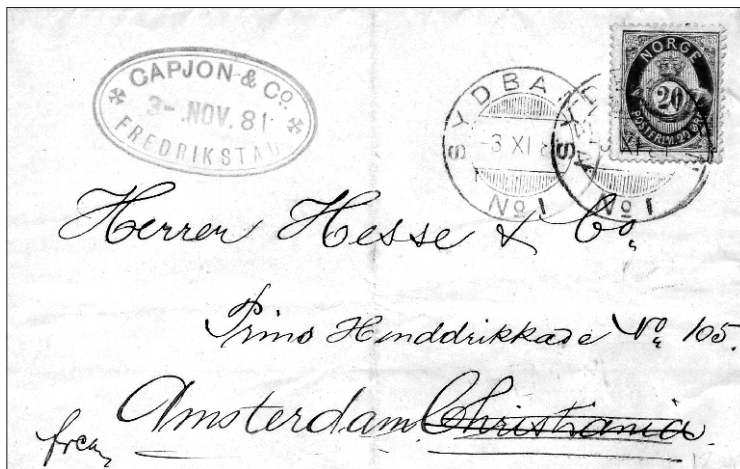 CAPJON & Co.
3-.NOV.81
FREDRIKSTAD
SYDBA
3 XI 8
No 1
3 XI 81
No 1
NORGE
20
POSTFRIM. 20 ØRE
Herrer Hesse & Co.
Prins Henddrikkade No 105.
Amsterdam. Christiania